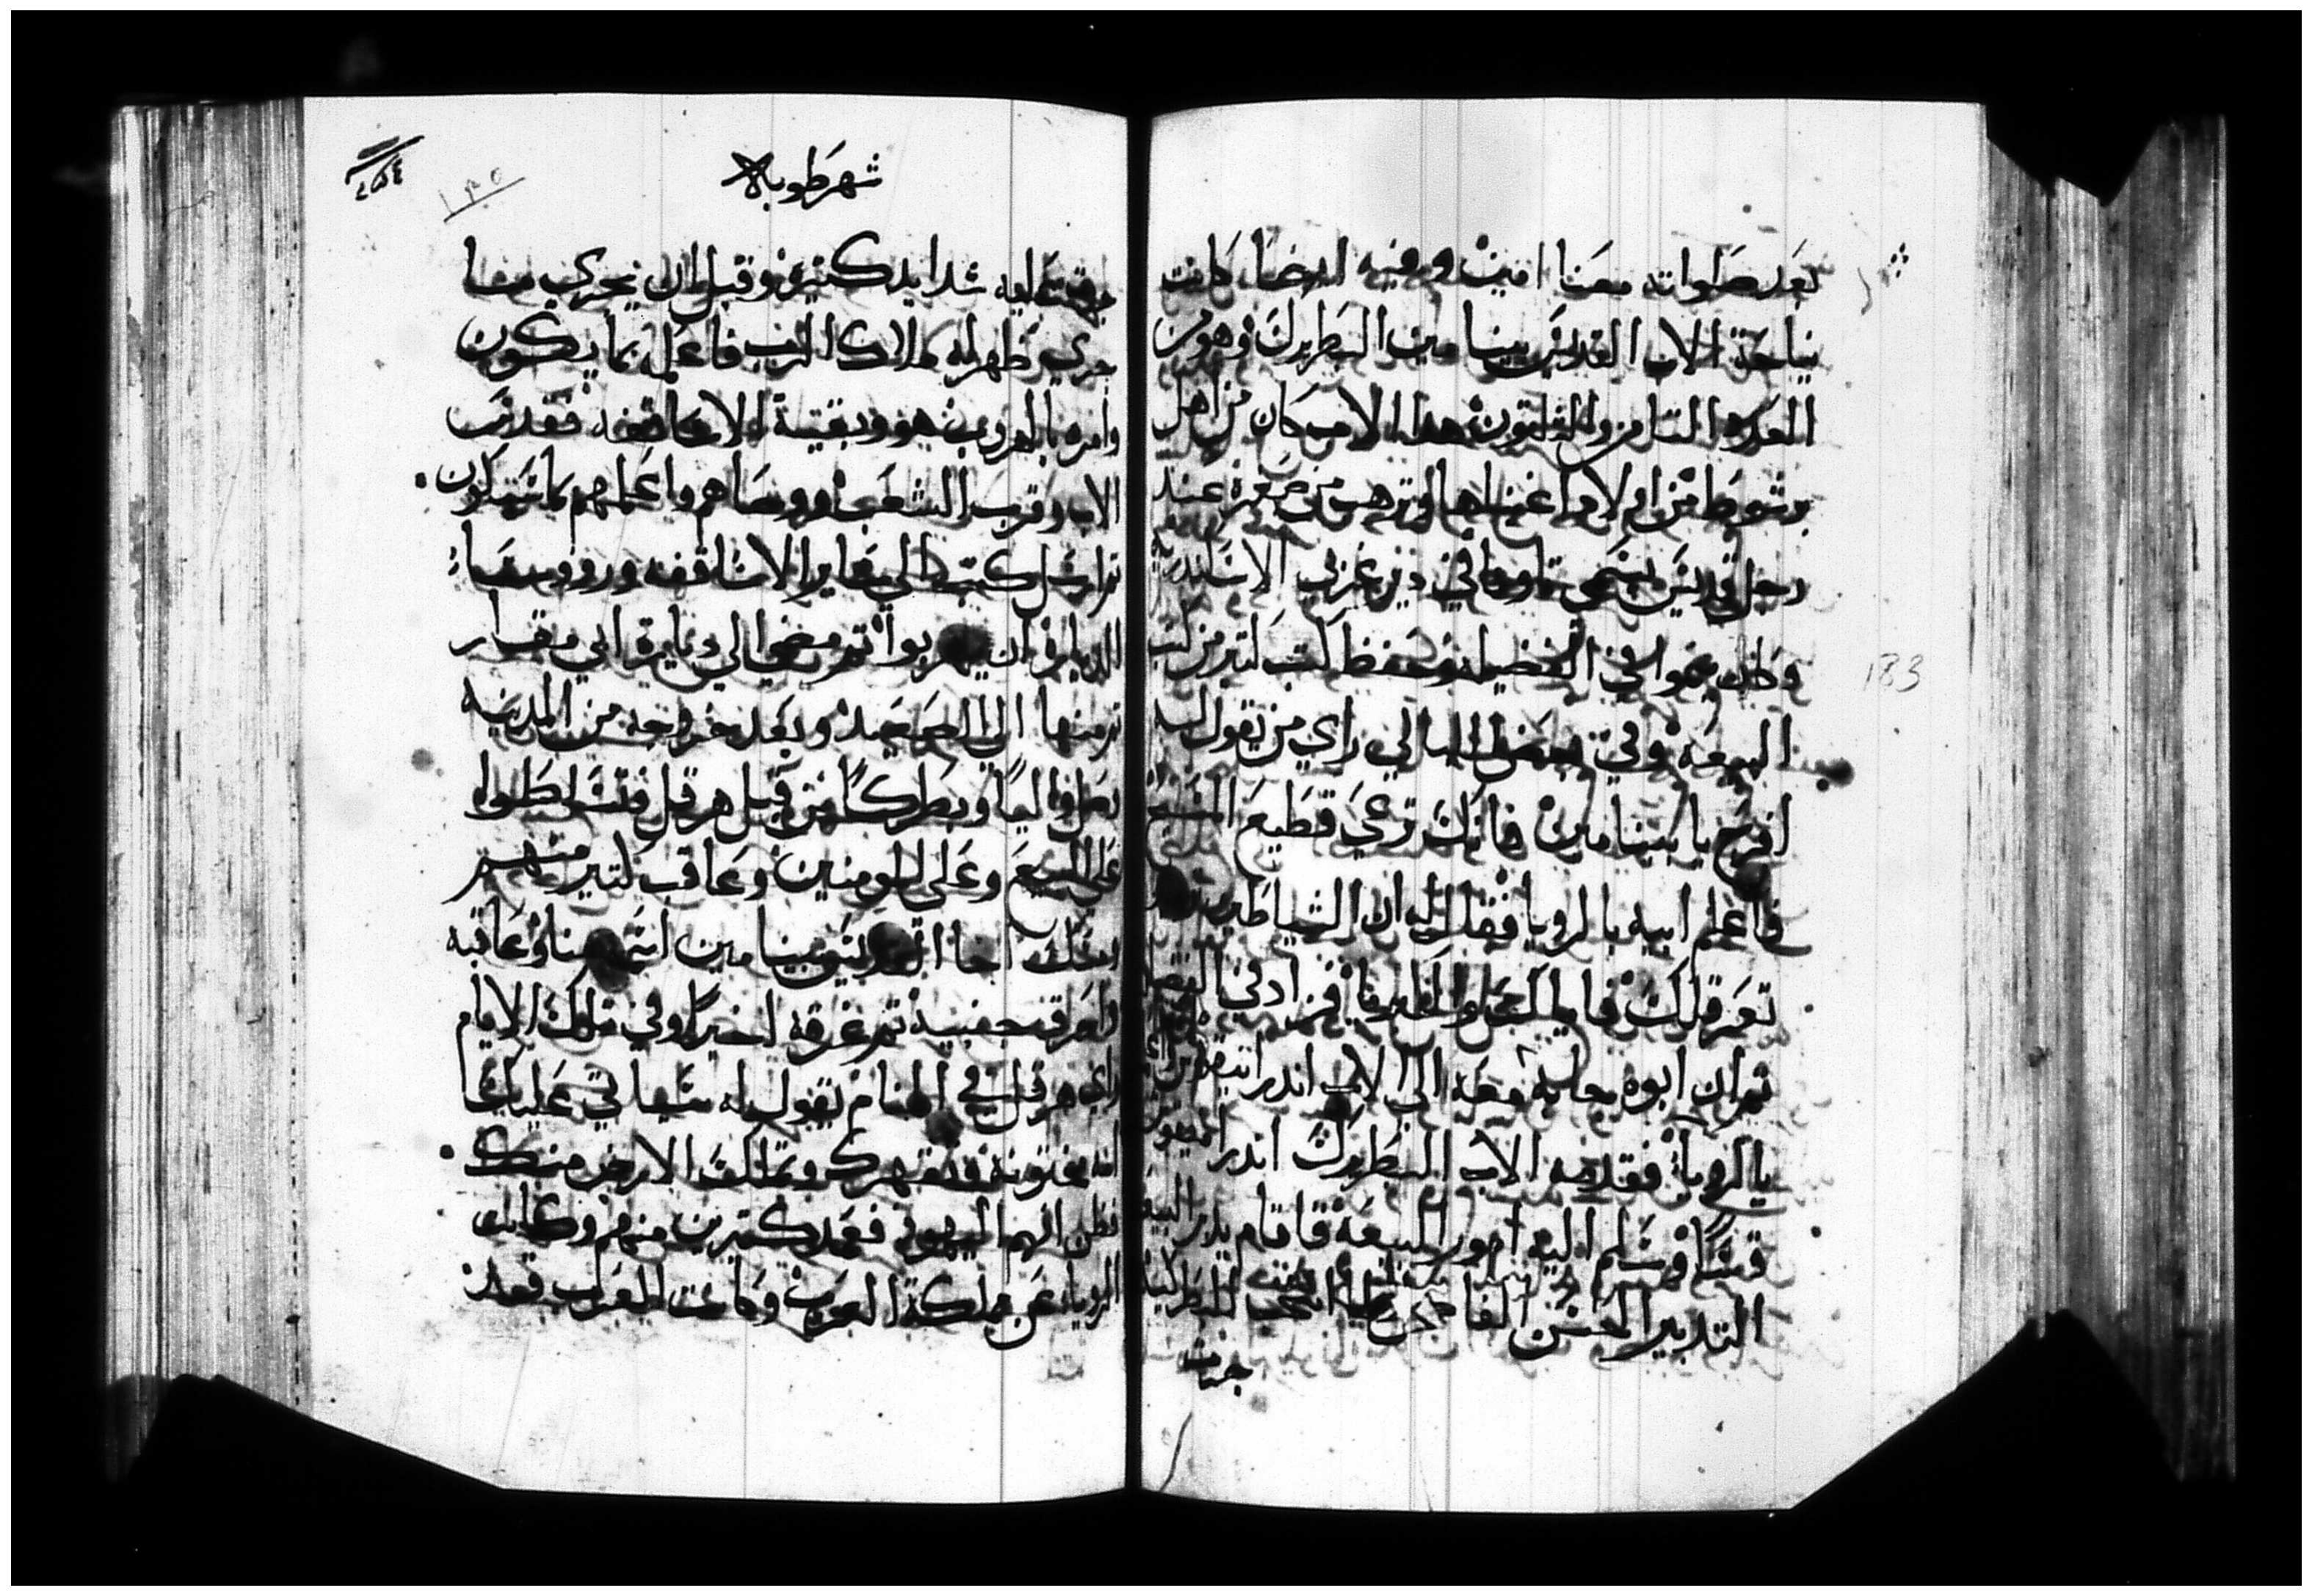 بعد صلواته معنا امين وفيه ايضا كانت
نياحة الاب القديس بينيامين البطريرك وهو من
العدد التامن والتلتون هدا الاب كان من اهل
برشوط من ام لاوا اغنيا وترهب من صغره عند
رجل قديس يسمي تاونا في دير غربي الاسكندرية
وظل ينموا في الفضيله وحفظ كتب كتير من كتب
البيعه وفي بعض الليالي راي من يقول له
افرح يا بنيامين فانك ترعي قطيع المسيح
فاعلم ابيه بالرويا فقال له ان الشياطين
تعرقلك فاياك والعظمه فزاد في الفضيله
تم ان ابوه جابه معه الي الاب اندرانيقوس
بالرويا فقدمه الاب البطريرك اندرانيقوس
قسا وسلم اليه امور البيعه فاقام يدبر البيعه
التدبير الحسن الفاضل انتخب للبطركيه
جرت
شهر طوبه
٤٥٤
١٣٥
جرت عليه شدايد كتيره وقبل ان يجري ما
جري ظهر له ملاك الرب فاعلمه بما يكون
وامره بالهروب هو وبقية الاساقفه فقدس
الاب وقرب الشعب ووصاهم واعلمهم بما سيكون
تم ارسل كتب الي ساير الاساقفه ورووسا
الدياره ان يهربوا تم مضي الي ديارة ابي مقار
تم منها الي الصعيد وبعد خروجه من المدينه
وصل واليا وبطركا من قبل هرقل فتسلطوا
علي البيع وعلي المومنين وعاقب كتير منهم
ومسك اخا القديس بينيامين اسمه مينا وعاقبه
واحرق جنبيه تم غرقه اخيرا وفي تلك الايام
راي هرقل في المنام يقول له ستاتي عليك
امه مختونه وتقهرك وتملك الارض منك
فظن انهم اليهود فعمد كتيرين منهم وكانت
الرويا عن مملكة العرب وكانت العرب قد

183